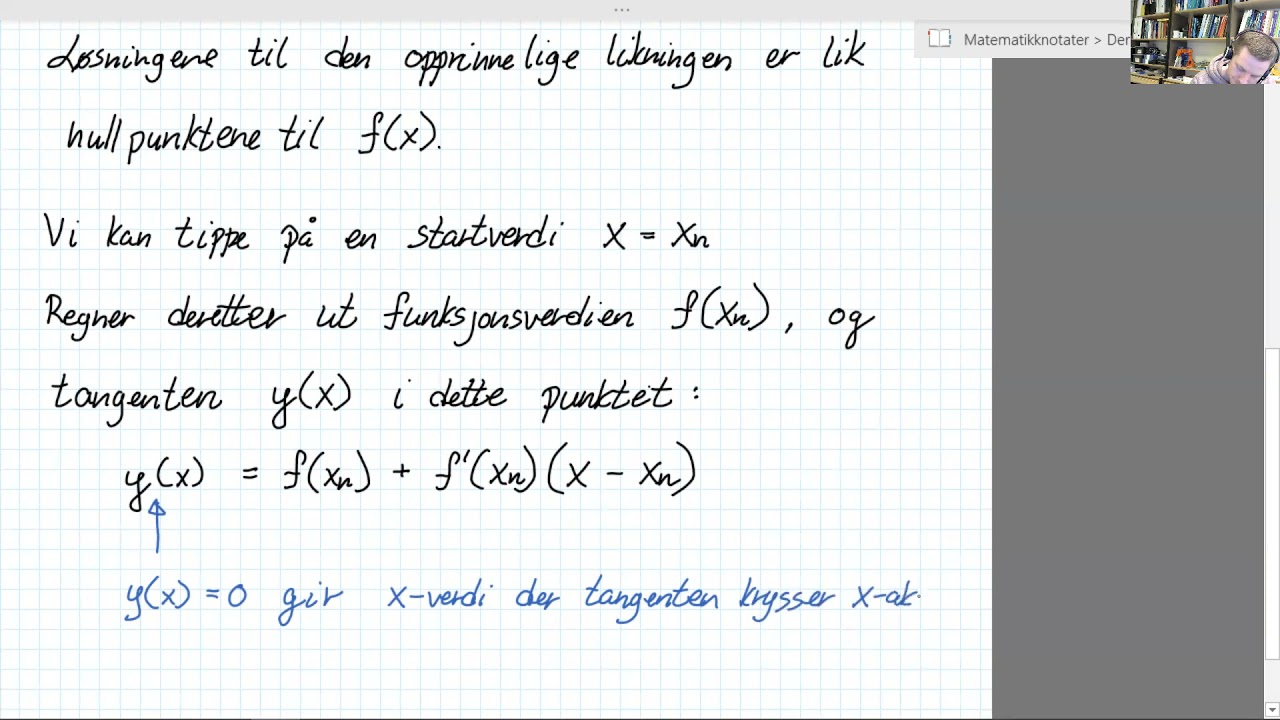 ...
Matematikknotater > Der
Løsningene til den opprinnelige likningen er lik
nullpunktene til f(x).
Vi kan tippe på en startverdi x = xn
Regner deretter ut funksjonsverdien f(xn), og
tangenten y(x) i dette punktet :
y(x) = f(xn) + f'(xn)(x - xn)
y(x) = 0 gir x-verdi der tangenten krysser x-ak